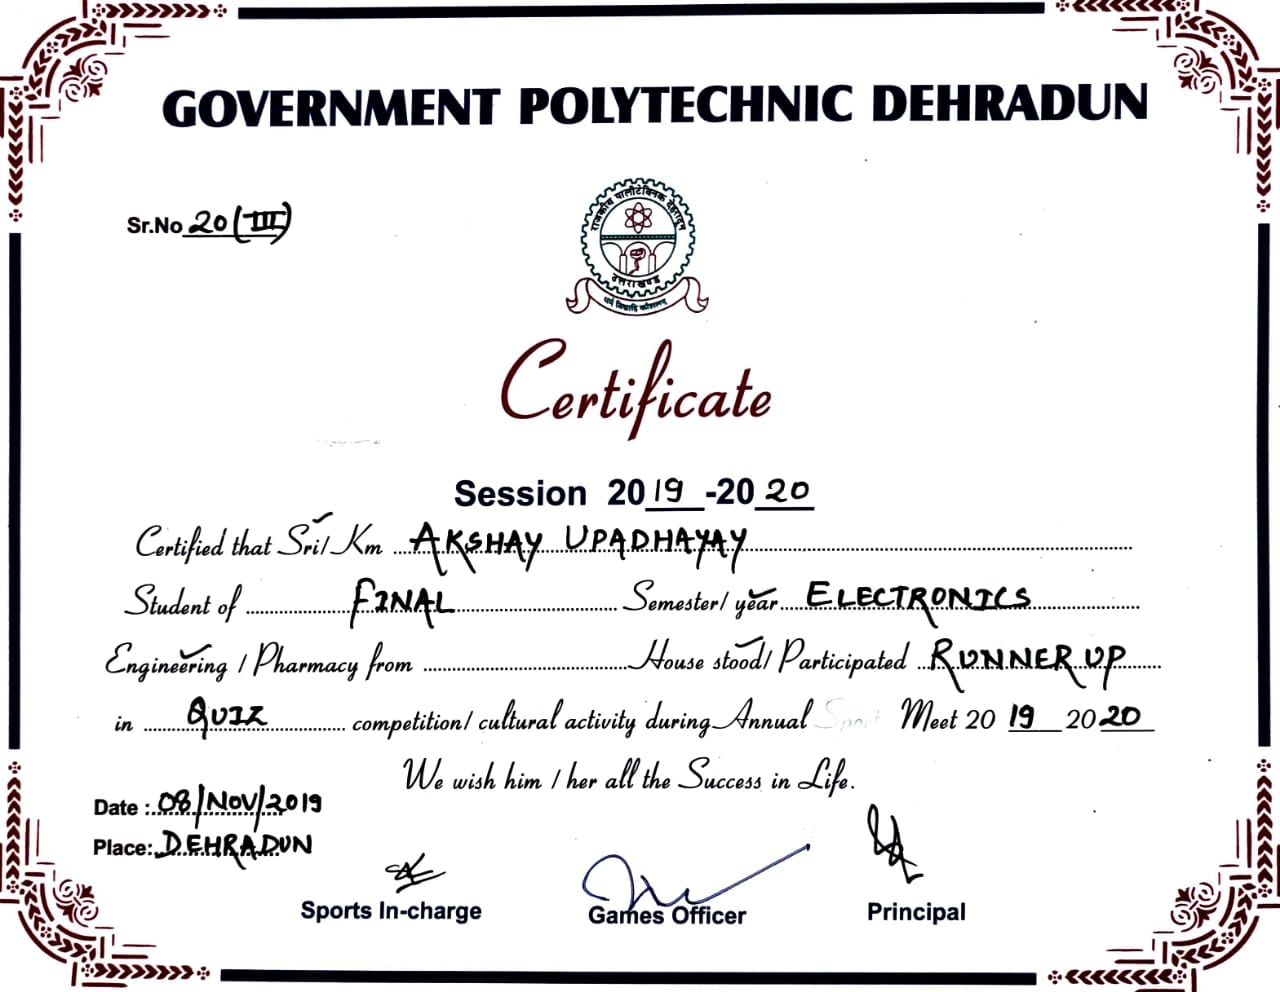 GOVERNMENT POLYTECHNIC DEHRADUN
Sr.No 20 (III)
राजकीय पालीटेक्निक देहरादून
उत्तराखण्ड
Certificate
Session 2019-2020
Certified that Sri/ Km AKSHAY UPADHAYAY
Student of FINAL Semester/ year ELECTRONICS
Engineering / Pharmacy from House stood/ Participated RUNNER UP
in QUIZ competition/ cultural activity during Annual Sport Meet 20 19 20 20
We wish him / her all the Success in Life.
Date : 08/NOV/2019
Place: DEHRADUN
Sports In-charge Games Officer Principal